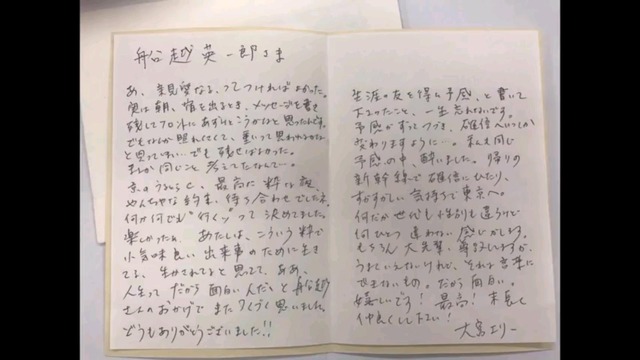 船越英一郎さま
あ、親愛なる、ってつければよかった。
実は朝、宿を出るとき、メッセージを書き
残してフロントにあずけとこうかなと思ったんです。
でもなんか照れくさくて、重いって思われるかなぁ
と思ってしまい…でも残せばよかった。
まさか同じこと考えてたなんて…。
京のうららと、最高に粋な
やんちゃな約束、待ち合わせでしたネ。
何が何でも"行く"って決めてました。
楽しかったぁ。あたしは、こういう粋で
小気味良い出来事のために生き
てる、生かされてると思ってて、ああ、
人生ってだから面白いんだぃと船越
さんのおかげでまたつくづく思いました。
どうもありがとうございました!!
生涯の友を得た予感、と書いて
下さったこと、一生忘れないです。
予感がずっとつづき、確信へいつか
変わりますように…。私も同じ
予感の中、酔いました。帰りの
新幹線で確信にひたり、
すがすがしい気持ちで東京へ。
何だか世代も性別も違うけど
何ひとつ違わない感じがします。
もちろん大先輩、尊敬しますが、
うまくいえないけれど、それは言葉に
できないもの。だから面白い。
嬉しいです!最高!末長く
仲良くして下さい!
大宮エリー